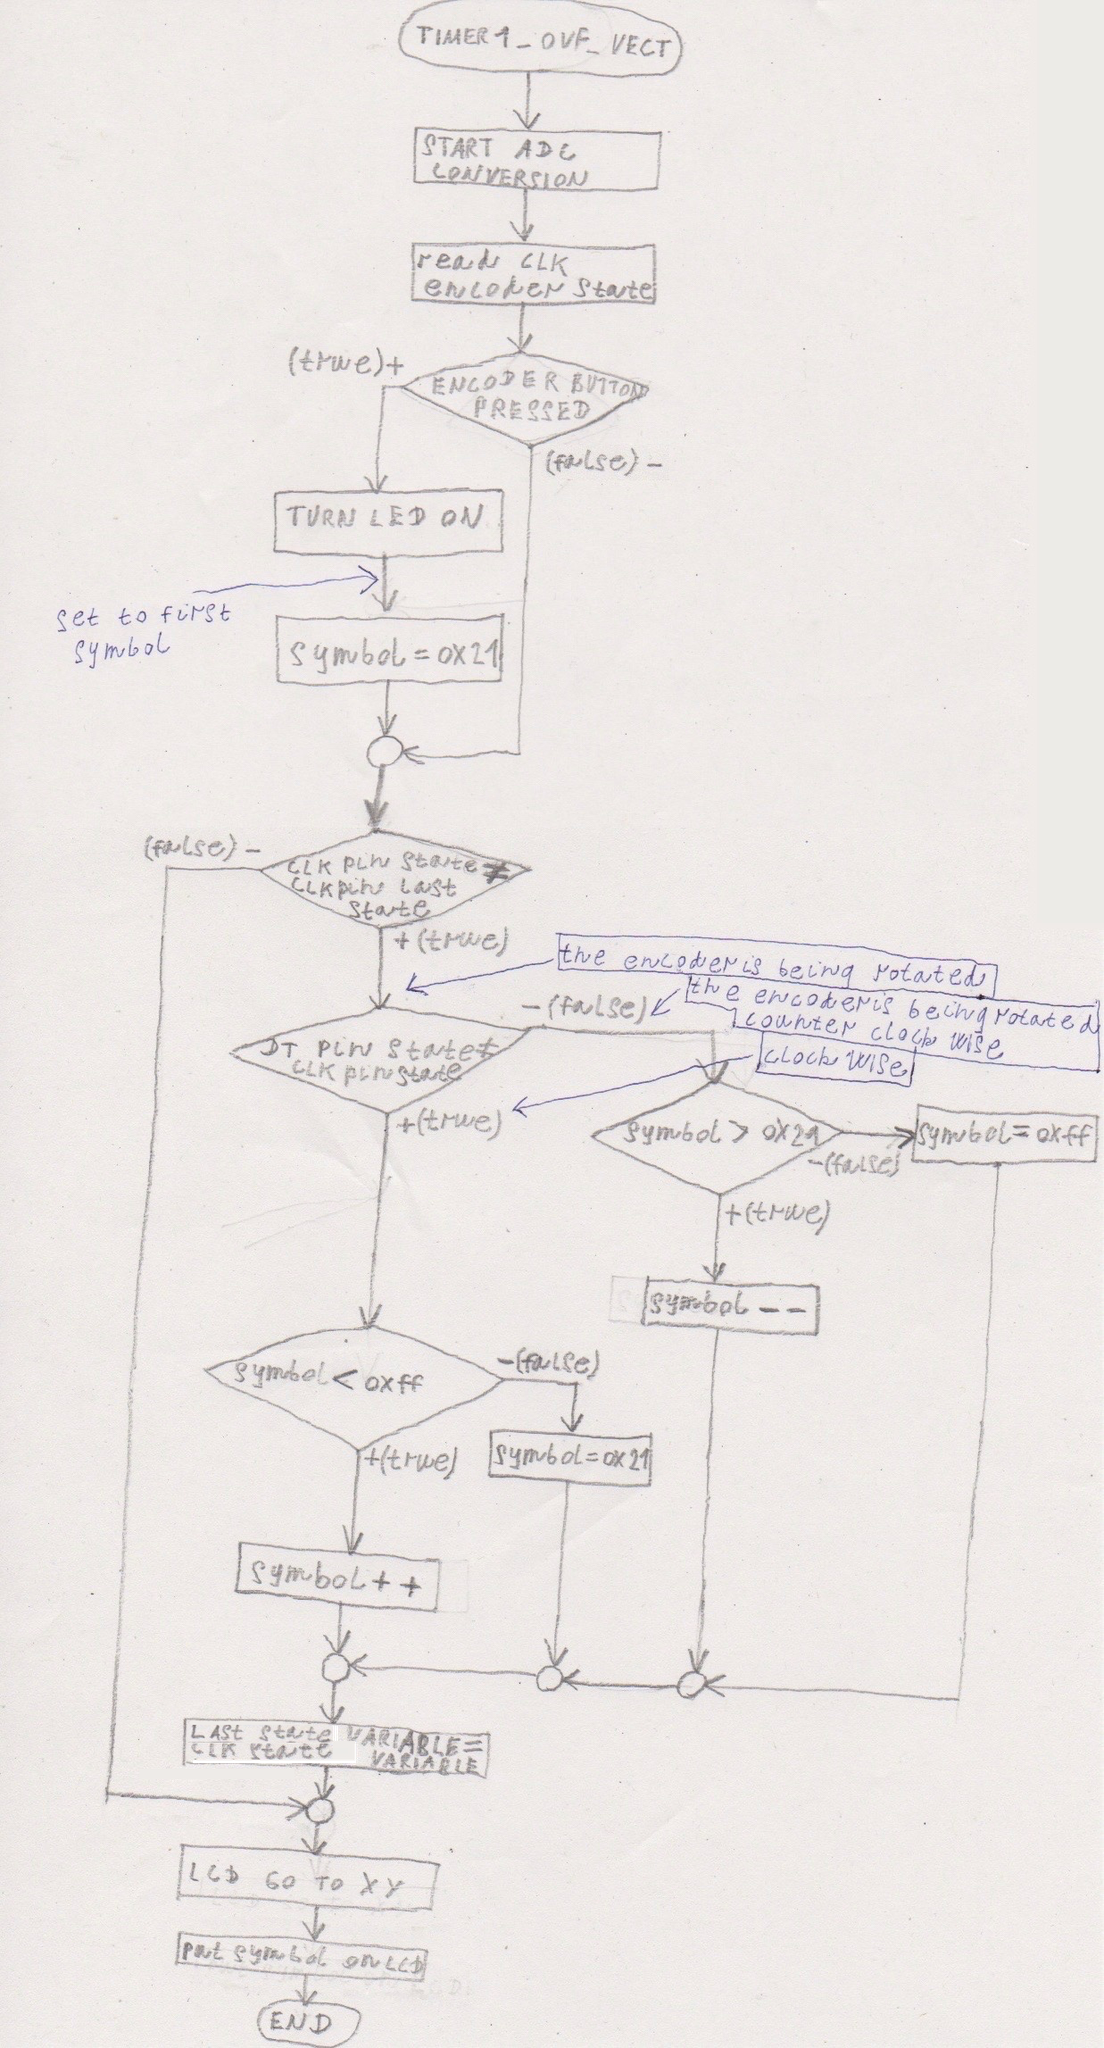 TIMER1_OVF_VECT
START ADC
CONVERSION
read CLK
encoder state
(true)+
ENCODER BUTTON
PRESSED
(false) -
TURN LED ON
set to first
symbol
symbol = 0x21
(false) -
CLK pin state ≠
CLK pin last
state
+ (true)
the encoder is being rotated
- (false)
the encoder is being rotated
counter clock wise
DT pin state ≠
CLK pin state
clock wise
+(true)
symbol > 0x21
symbol = 0xff
-(false)
+(true)
symbol --
symbol < 0xff
-(false)
symbol = 0x21
+(true)
symbol++
LAST state VARIABLE =
CLK state VARIABLE
LCD GO TO XY
put symbol on LCD
END